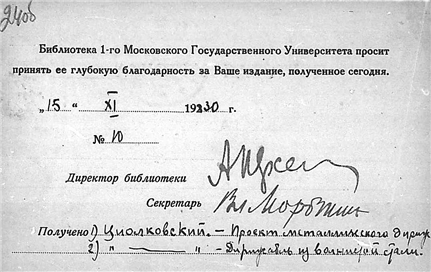 240б
Библиотека 1-го Московского Государственного Университета просит
принять ее глубокую благодарность за Ваше издание, полученное сегодня.
„15“ XI 19230 г.
№ 10
Директор библиотеки
Секретарь
Получено 1) Циолковский. – Проэкт металлического дириж
2) " — " – Дирижабль из волнистой стали.